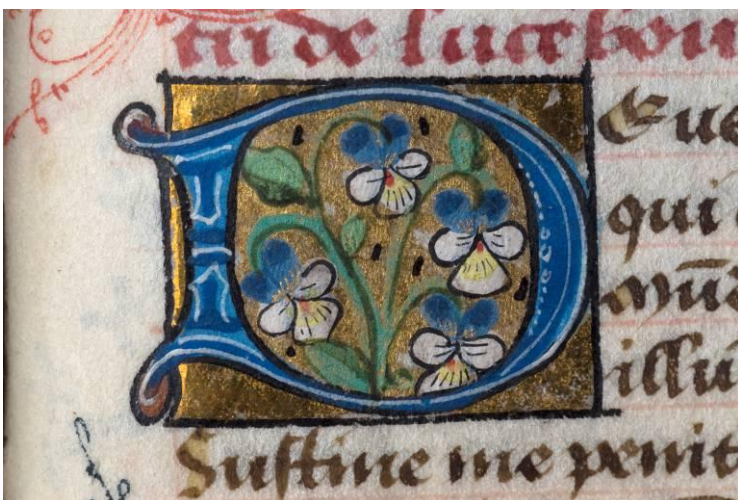 de lucebou
DEus
qui
mūd
illu
Sustine me penit